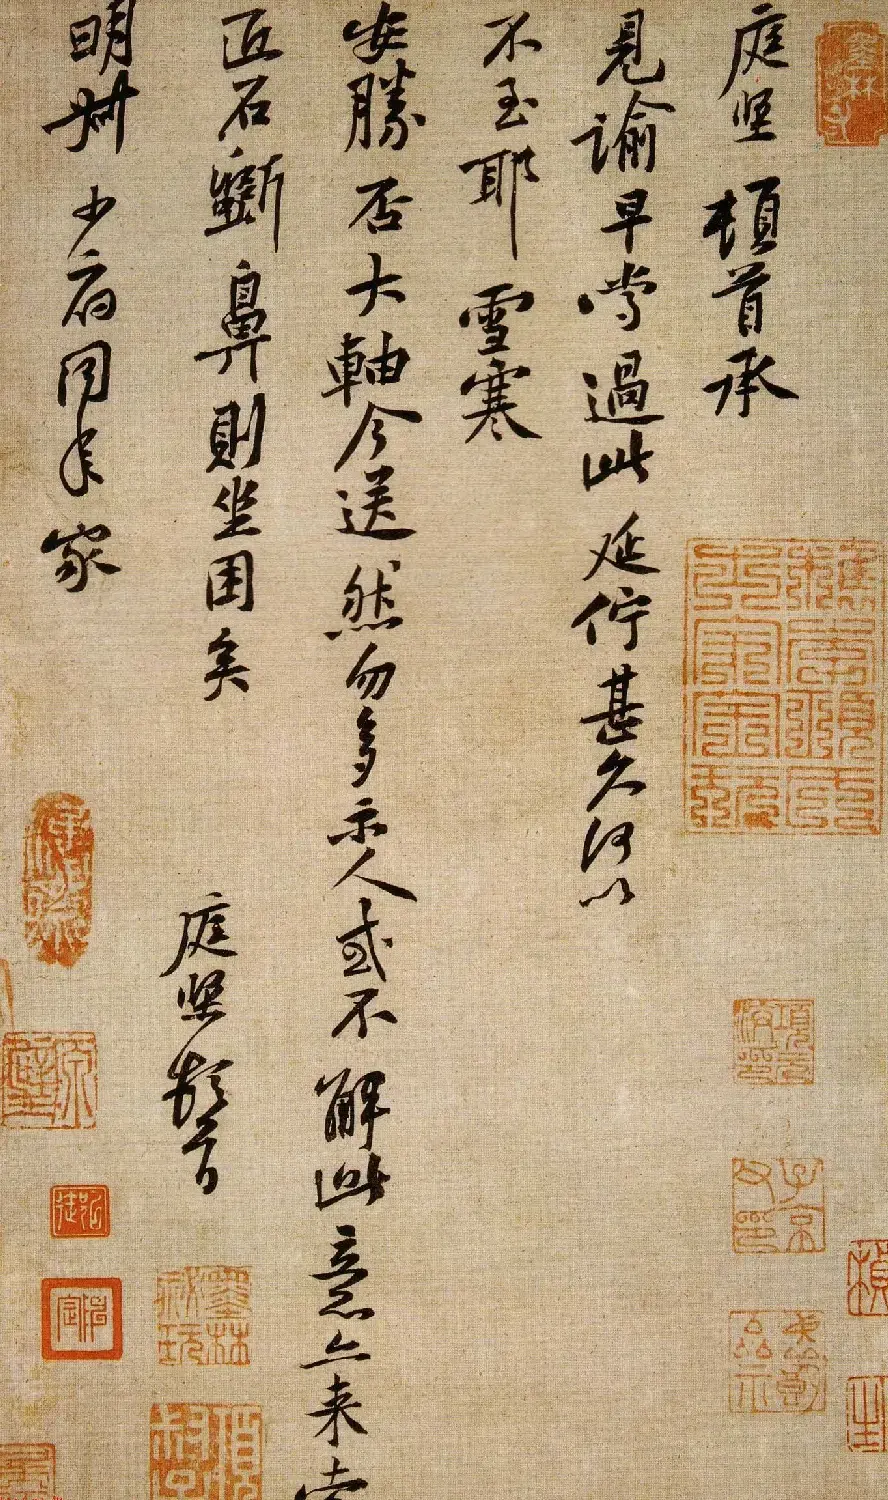 庭堅頓首承
見諭早嘗過此延佇甚久何以
不至耶雪寒
安勝否大軸今送然勿多示人或不解此意亦来
匠石斲鼻則坐困矣
庭堅頓首
明叔少府同年家
項元汴印
子京父印
墨林